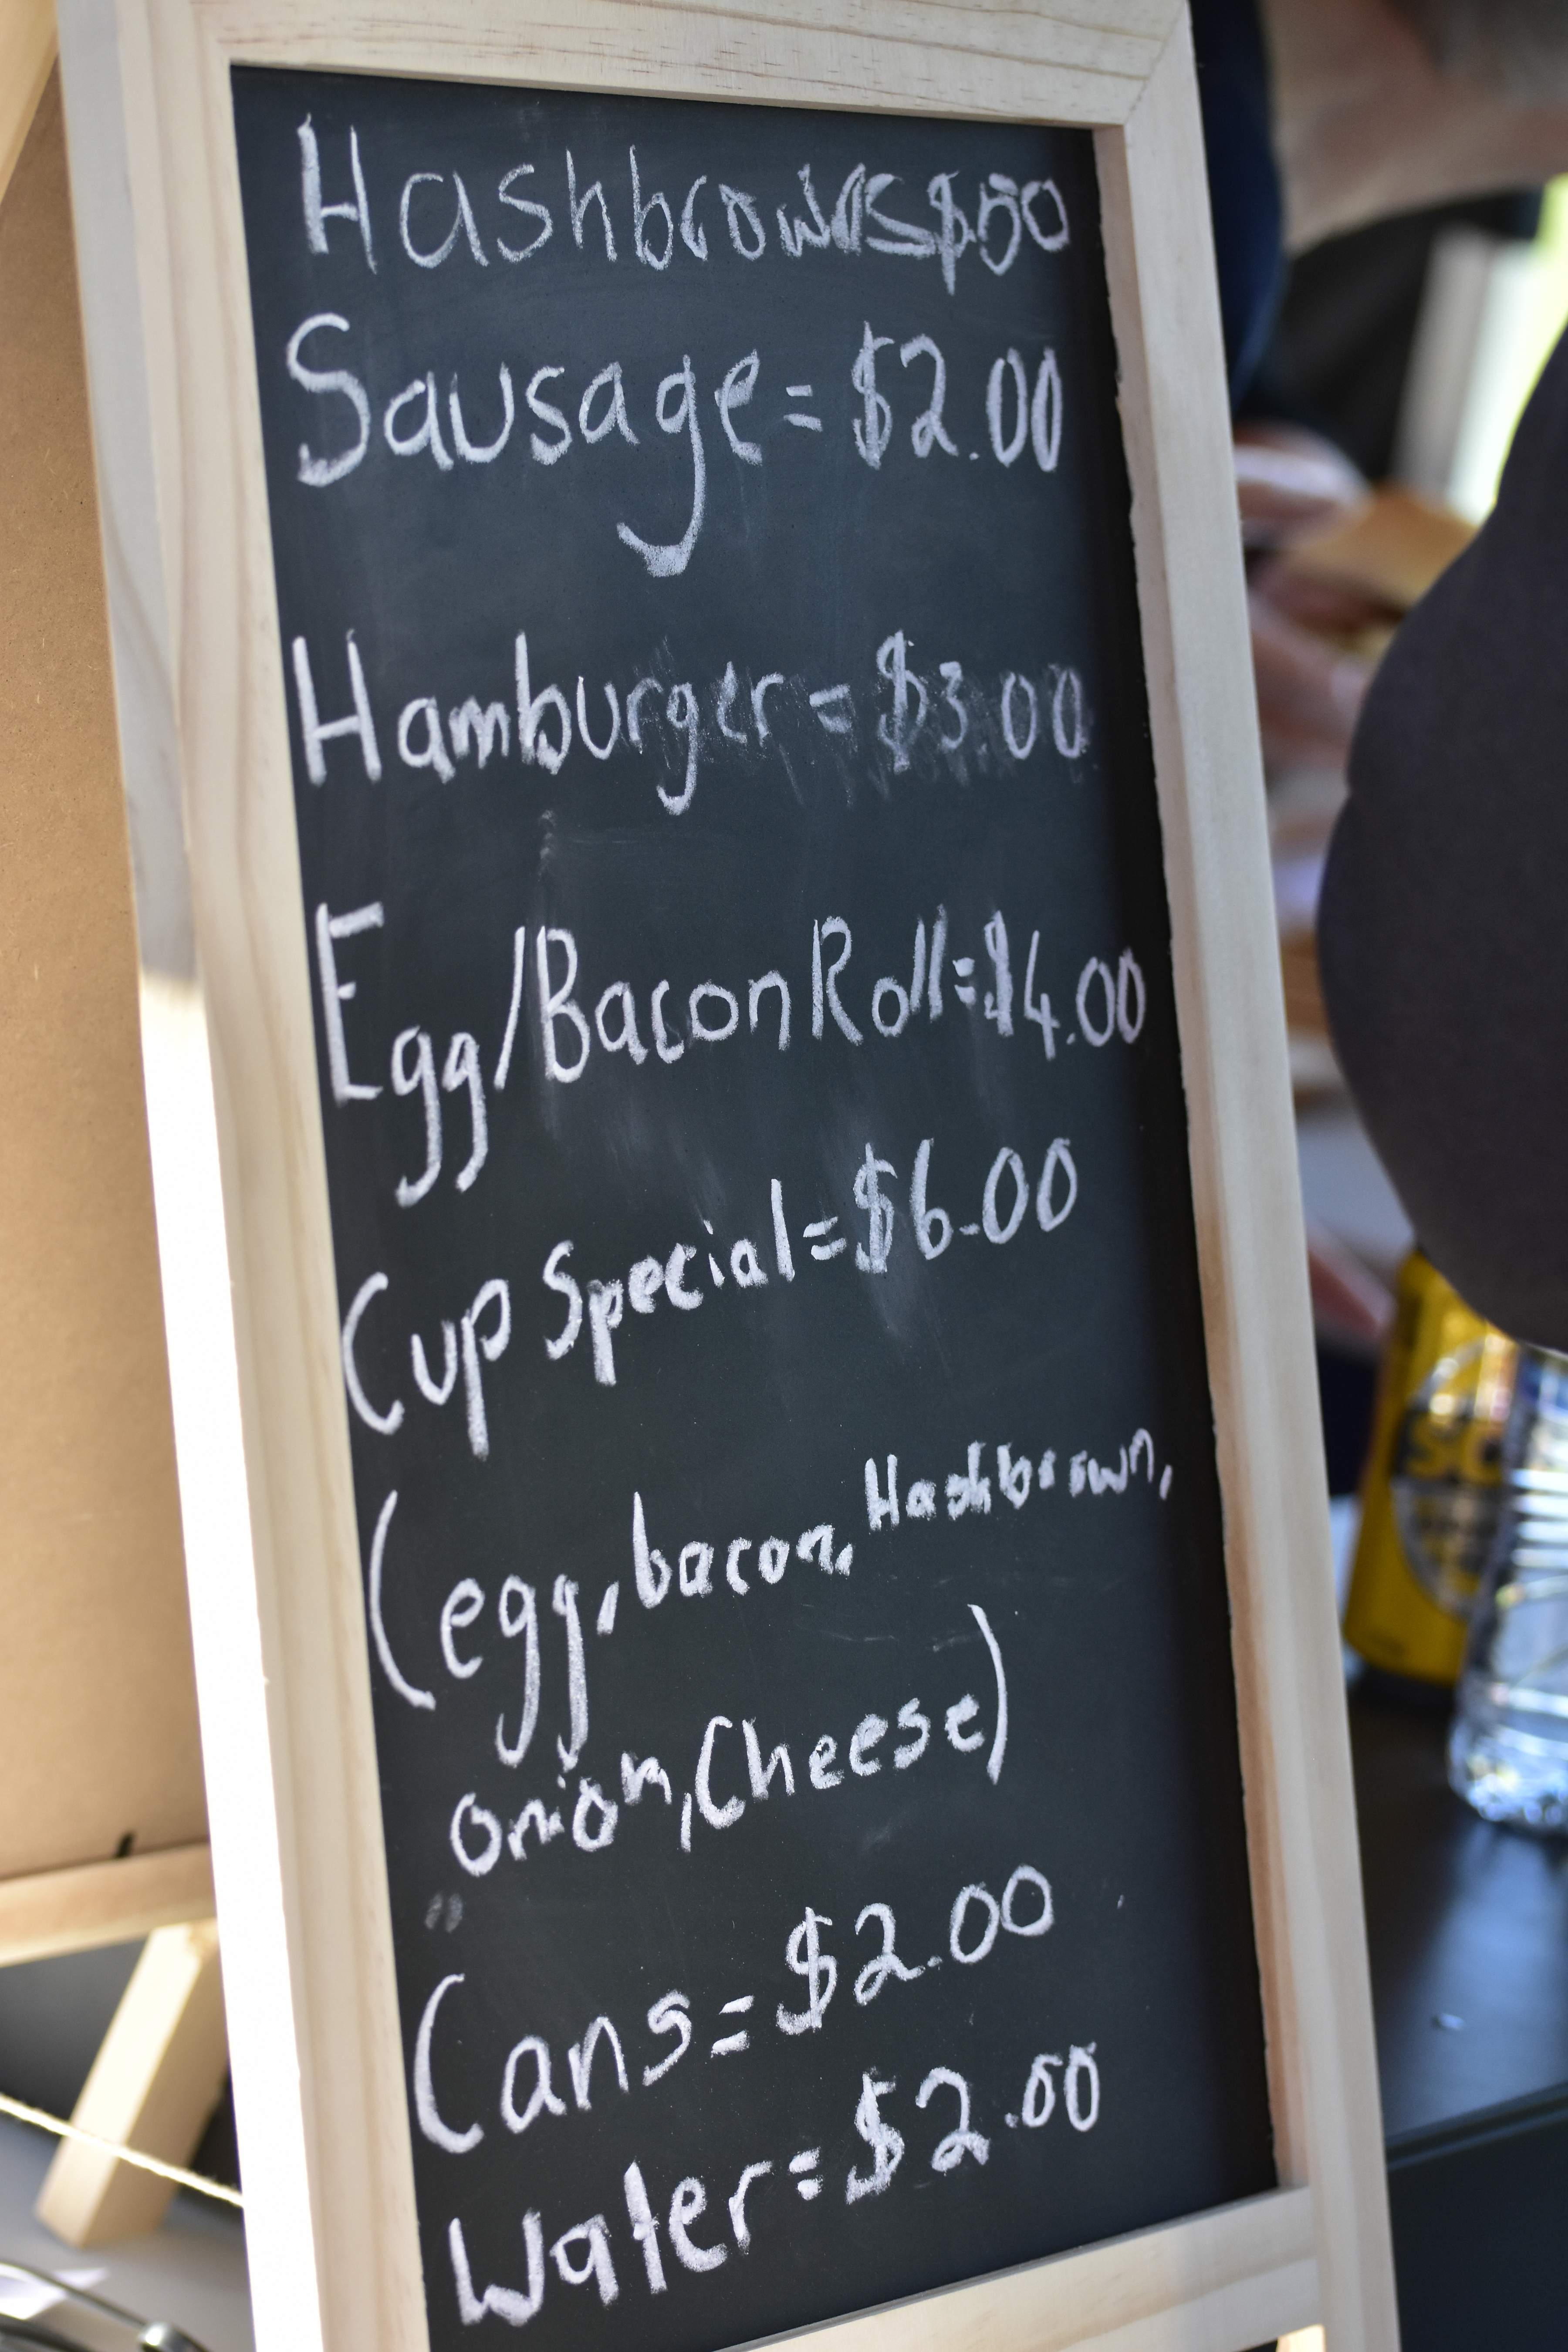 Hashbrowns $.50
Sausage = $2.00
Hamburger = $3.00
Egg/Bacon Roll = $4.00
Cup Special = $6.00
(egg, bacon, Hashbrown,
onion, Cheese)
Cans = $2.00
Water = $2.00